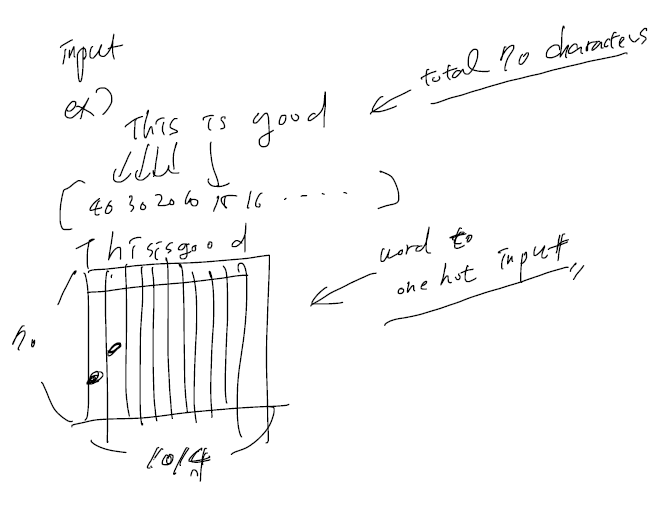 input
ex)
This is good
total no characters
[ 40 30 20 60 15 16 ..... ]
T h i s i s g o o d
word to
one hot input
n.
1014